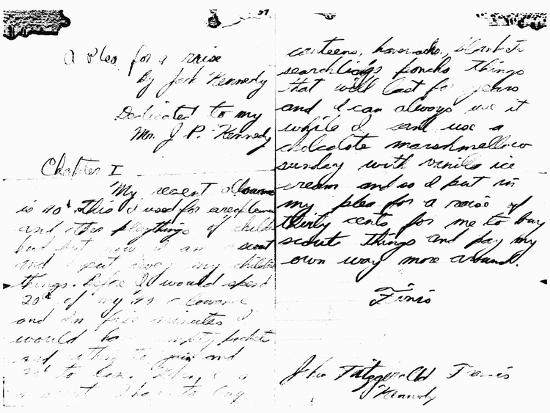 A Plea for a raise
By Jack Kennedy
Dedicated to my
Mr. J. P. Kennedy
Chapter I
My recent allowance
is 40¢. This I used for areoplanes
and other playthings of childhood
but now I am a scout
and I put away my childish
things. Before I would spend
20¢ of my 40¢ allowance
and in five minutes I
would have empty pockets
and nothing to gain and
20¢ to lose. When I a
a scout I have to buy
canteens, haversacks, blankets
searchlights poncho things
that will last for years
and I can always use it
while I cant use a
chocolate marshmellow
sunday with vanilla ice
cream and so I put in
my plea for a raise of
thirty cents for me to buy
scout things and pay my
own way more around.
Finis
John Fitzgerald Francis
Kennedy